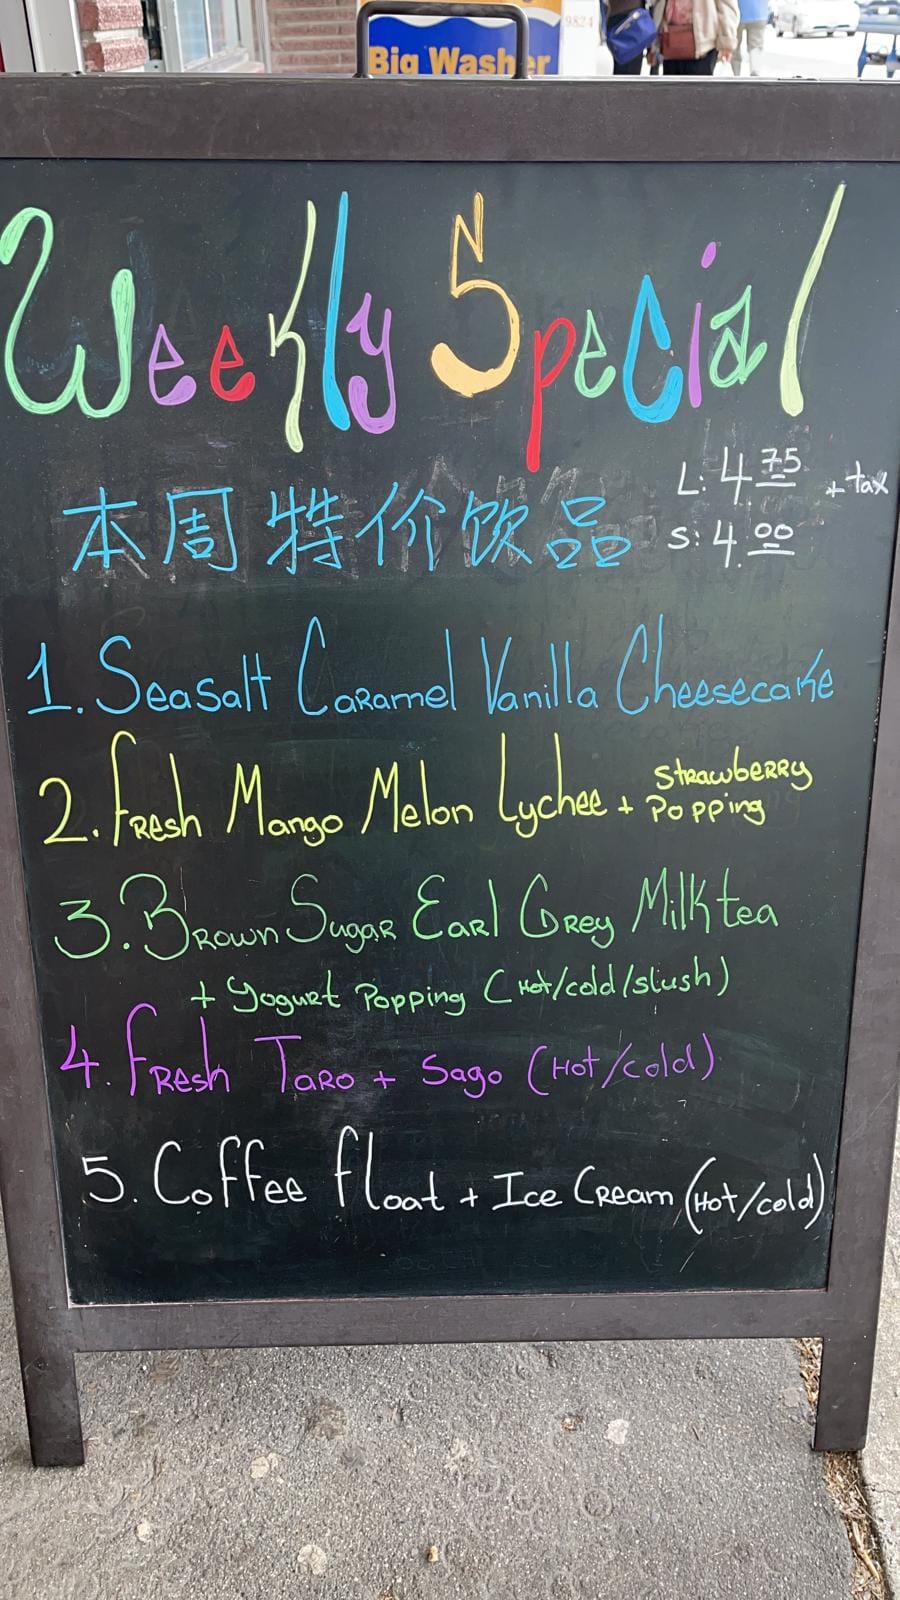 Big Washer
9824
Weekly Special
本周特价饮品
L: 4.75 + tax
S: 4.00
1. Seasalt Caramel Vanilla Cheesecake
2. Fresh Mango Melon Lychee + Strawberry Popping
3. Brown Sugar Earl Grey Milk tea
+ Yogurt Popping (Hot/cold/slush)
4. Fresh Taro + Sago (Hot/cold)
5. Coffee float + Ice Cream (Hot/cold)